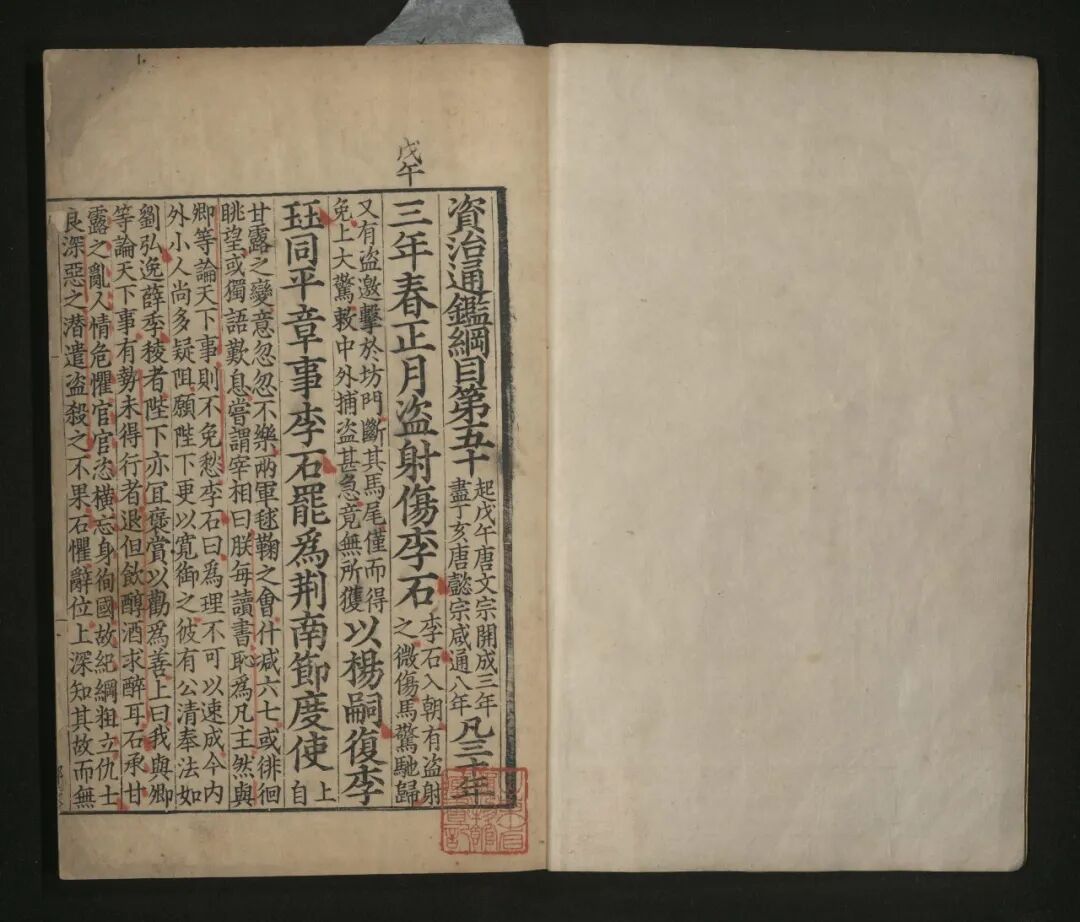 戊午
資治通鑑綱目第五十
起戊午唐文宗開成三年
盡丁亥唐懿宗咸通八年
凡三十年
三年春正月盜射傷李石
李石入朝有盜射
之微傷馬驚馳歸
又有盜邀擊於坊門斷其馬尾僅而得
免上大驚敕中外捕盜甚急竟無所獲
以楊嗣復李
珏同平章事李石罷爲荆南節度使
上
自
甘露之變意忽忽不樂兩軍毬鞠之會什减六七或徘徊
眺望或獨語歎息嘗謂宰相曰朕每讀書恥爲凡主然與
卿等論天下事則不免愁李石曰爲理不可以速成今内
外小人尚多疑阻願陛下更以寬御之彼有公清奉法如
劉弘逸薛季稜者陛下亦冝褒賞以勸爲善上曰我與卿
等論天下事有勢未得行者退但飲醇酒求醉耳石承甘
露之亂人情危懼宦官恣橫忘身徇國故紀綱粗立仇士
良深惡之潜遣盜殺之不果石懼辭位上深知其故而無